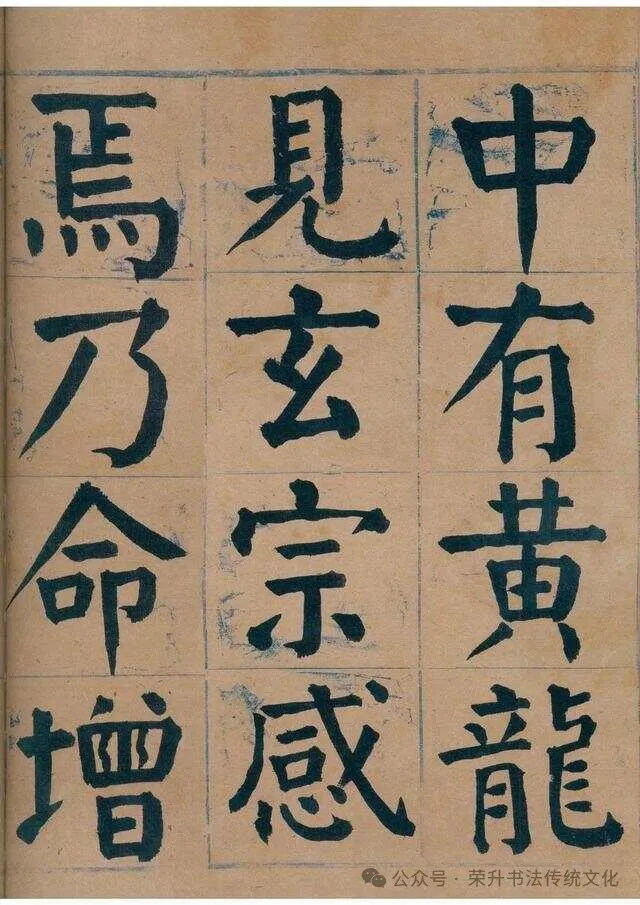 中有黄龍
見玄宗感
焉乃命增
公众号·荣升书法传统文化